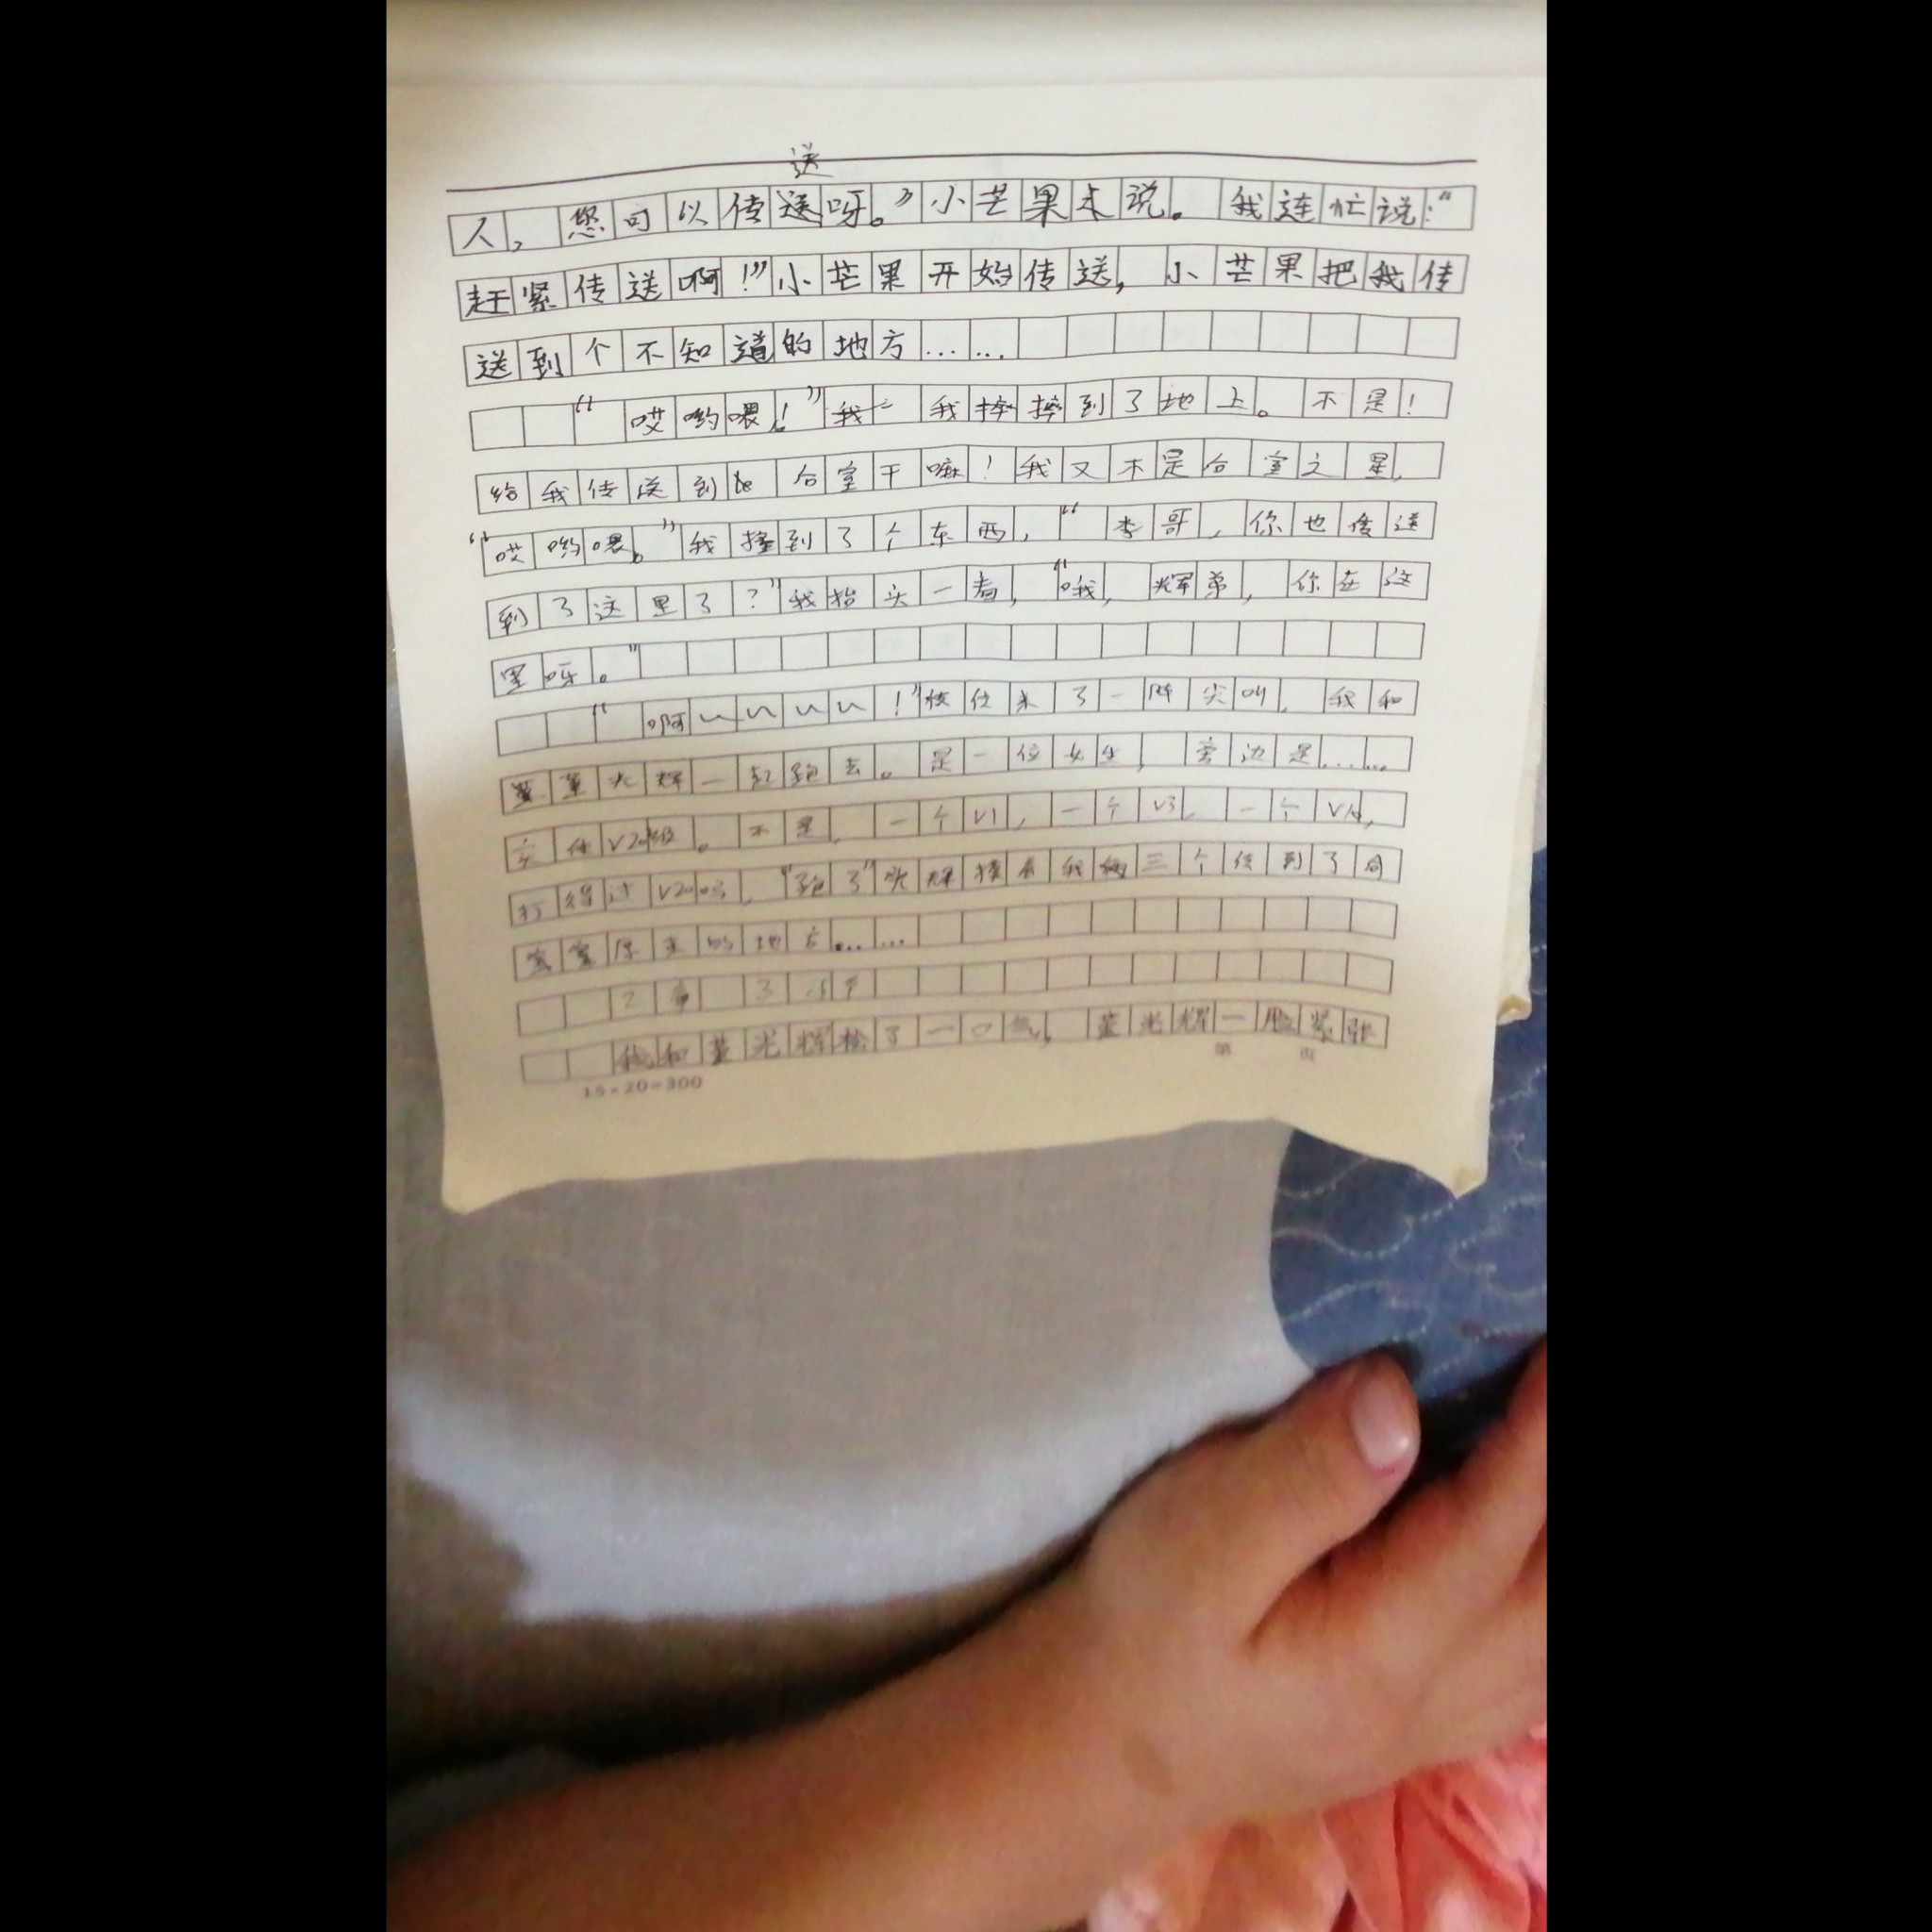 送
人，您可以传送呀。”小芒果来说。我连忙说：“
赶紧传送啊！”小芒果开始传送，小芒果把我传
送到个不知道的地方……
“哎哟喂！”我摔到了地上。不是！
给我传送到 台室干嘛！我又不是台室之星，
“哎哟喂。”我撞到了个东西，“李哥，你也传送
到了这里了？”我抬头一看，“哦，辉弟，你在这
里呀。”
“啊～～～～！”传来了一阵尖叫，我和
董光辉一起跑去。是一位女生，旁边是……
V20级。不是，一个V1，一个V3，一个V
打得过V20吗，“跑了”光辉 我 三个传到了
原来的地方……
2章
我和董光辉 了一口气，董光辉一脸紧张
15×20=300
第 页